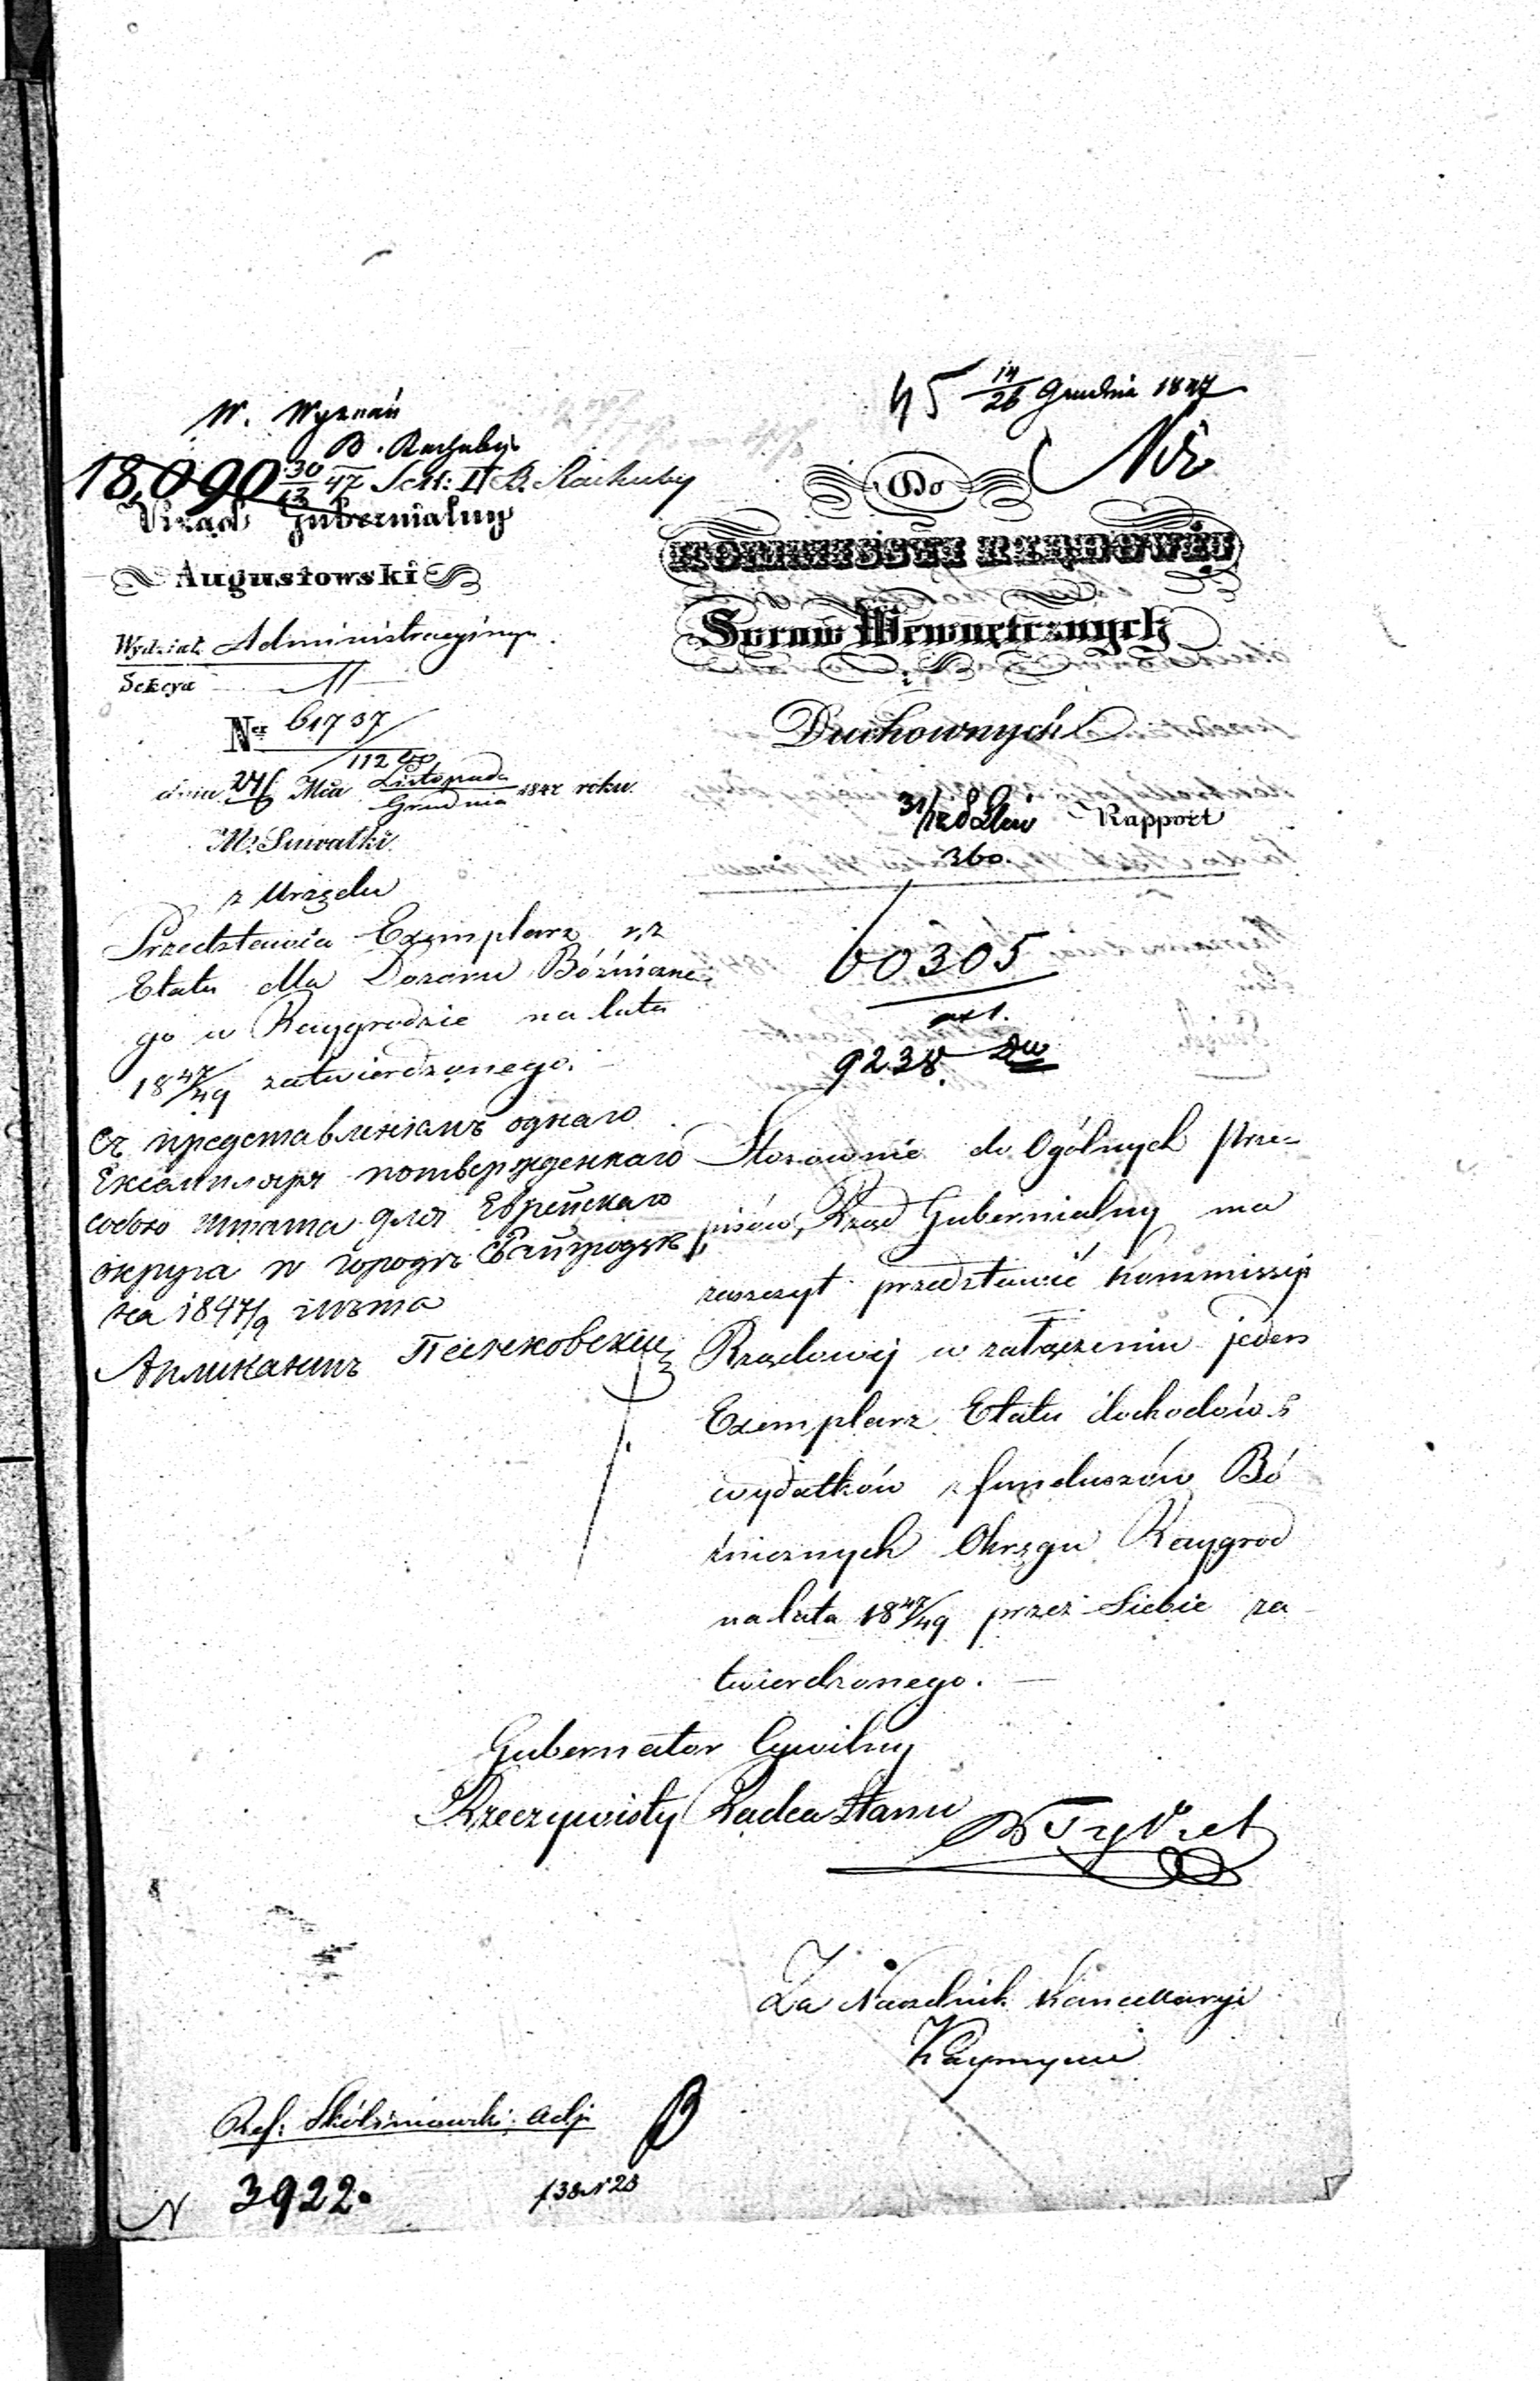 45 14/26 Grudnia 1847
W. Wyznań
B. Rachuby
18,090 30/12 47 Sek: II B. Rachuby
Rząd Gubernialny
Augustowski
Wydział Administracyjny.
Sekcya II
Ner 61737/11240
dnia 24/6 Mca Listopada/Grudnia 1847 roku.
M. Suwałki.
z Urzędu
Przedstawia Exemplarz
Etatu dla Dozoru Bóżniczne-
go w Raygrodzie na lata
18 47/49 zatwierdzonego.
Съ представленіемъ одного
Екземпляра потвержденнаго
собою штата для Еврейскаго
округа въ городѣ Райгродѣ
на 1847/9 лѣта
Апликантъ
Do
KOMMISSYI RZĄDOWÉJ
Spraw Wewnętrznych
i
Duchownych
31/12
Rapport
360.
60305
9238.
Stosownie do Ogólnych prze-
pisów, Rząd Gubernialny ma
zaszczyt przedstawić Kommissyi
Rządowéj w załączeniu jeden
Exemplarz Etatu dochodów i
wydatków z funduszów Bó
żnicznych Okręgu Raygrod
na lata 18 47/49 przez Siebie za
twierdzonego.
Gubernator Cywilny
Rzeczywisty Radca Stanu
Za Naczelnik Kancellaryi
Ref: adj.
N 3922.